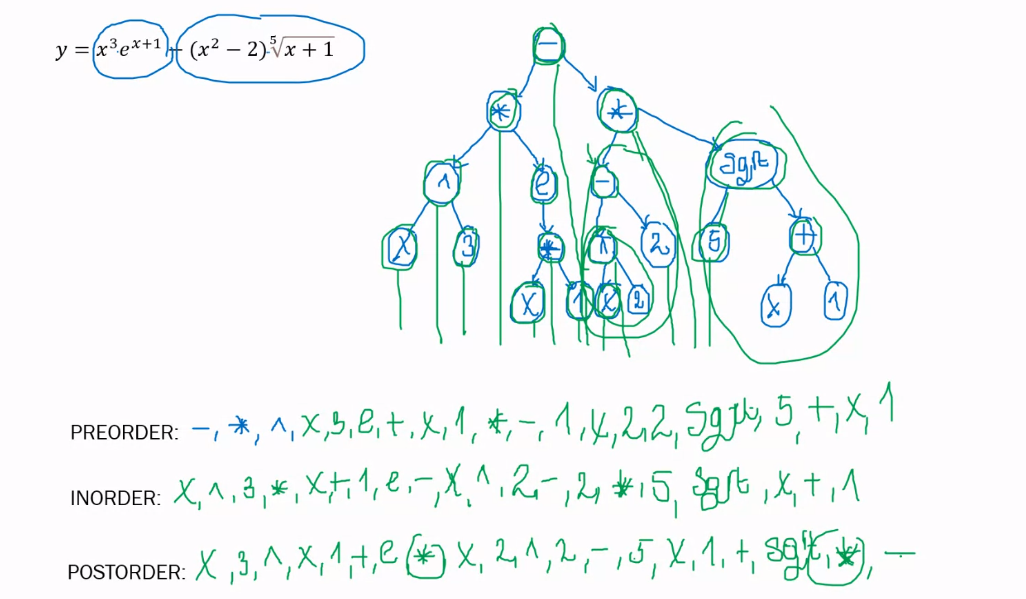 y = x³eˣ⁺¹ − (x² − 2)·⁵√x + 1
−
* *
^ e − sqrt
x 3 * ^ 2 5 +
x 1 x 2 x 1
PREORDER: −, *, ^, x, 3, e, +, x, 1, *, −, 1, x, 2, 2, Sqrt, 5, +, x, 1
INORDER: x, ^, 3, *, x, +, 1, e, −, x, ^, 2, −, 2, *, 5, sqrt, x, +, 1
POSTORDER: x, 3, ^, x, 1, +, e, *, x, 2, ^, 2, −, 5, x, 1, +, sqrt, *, −